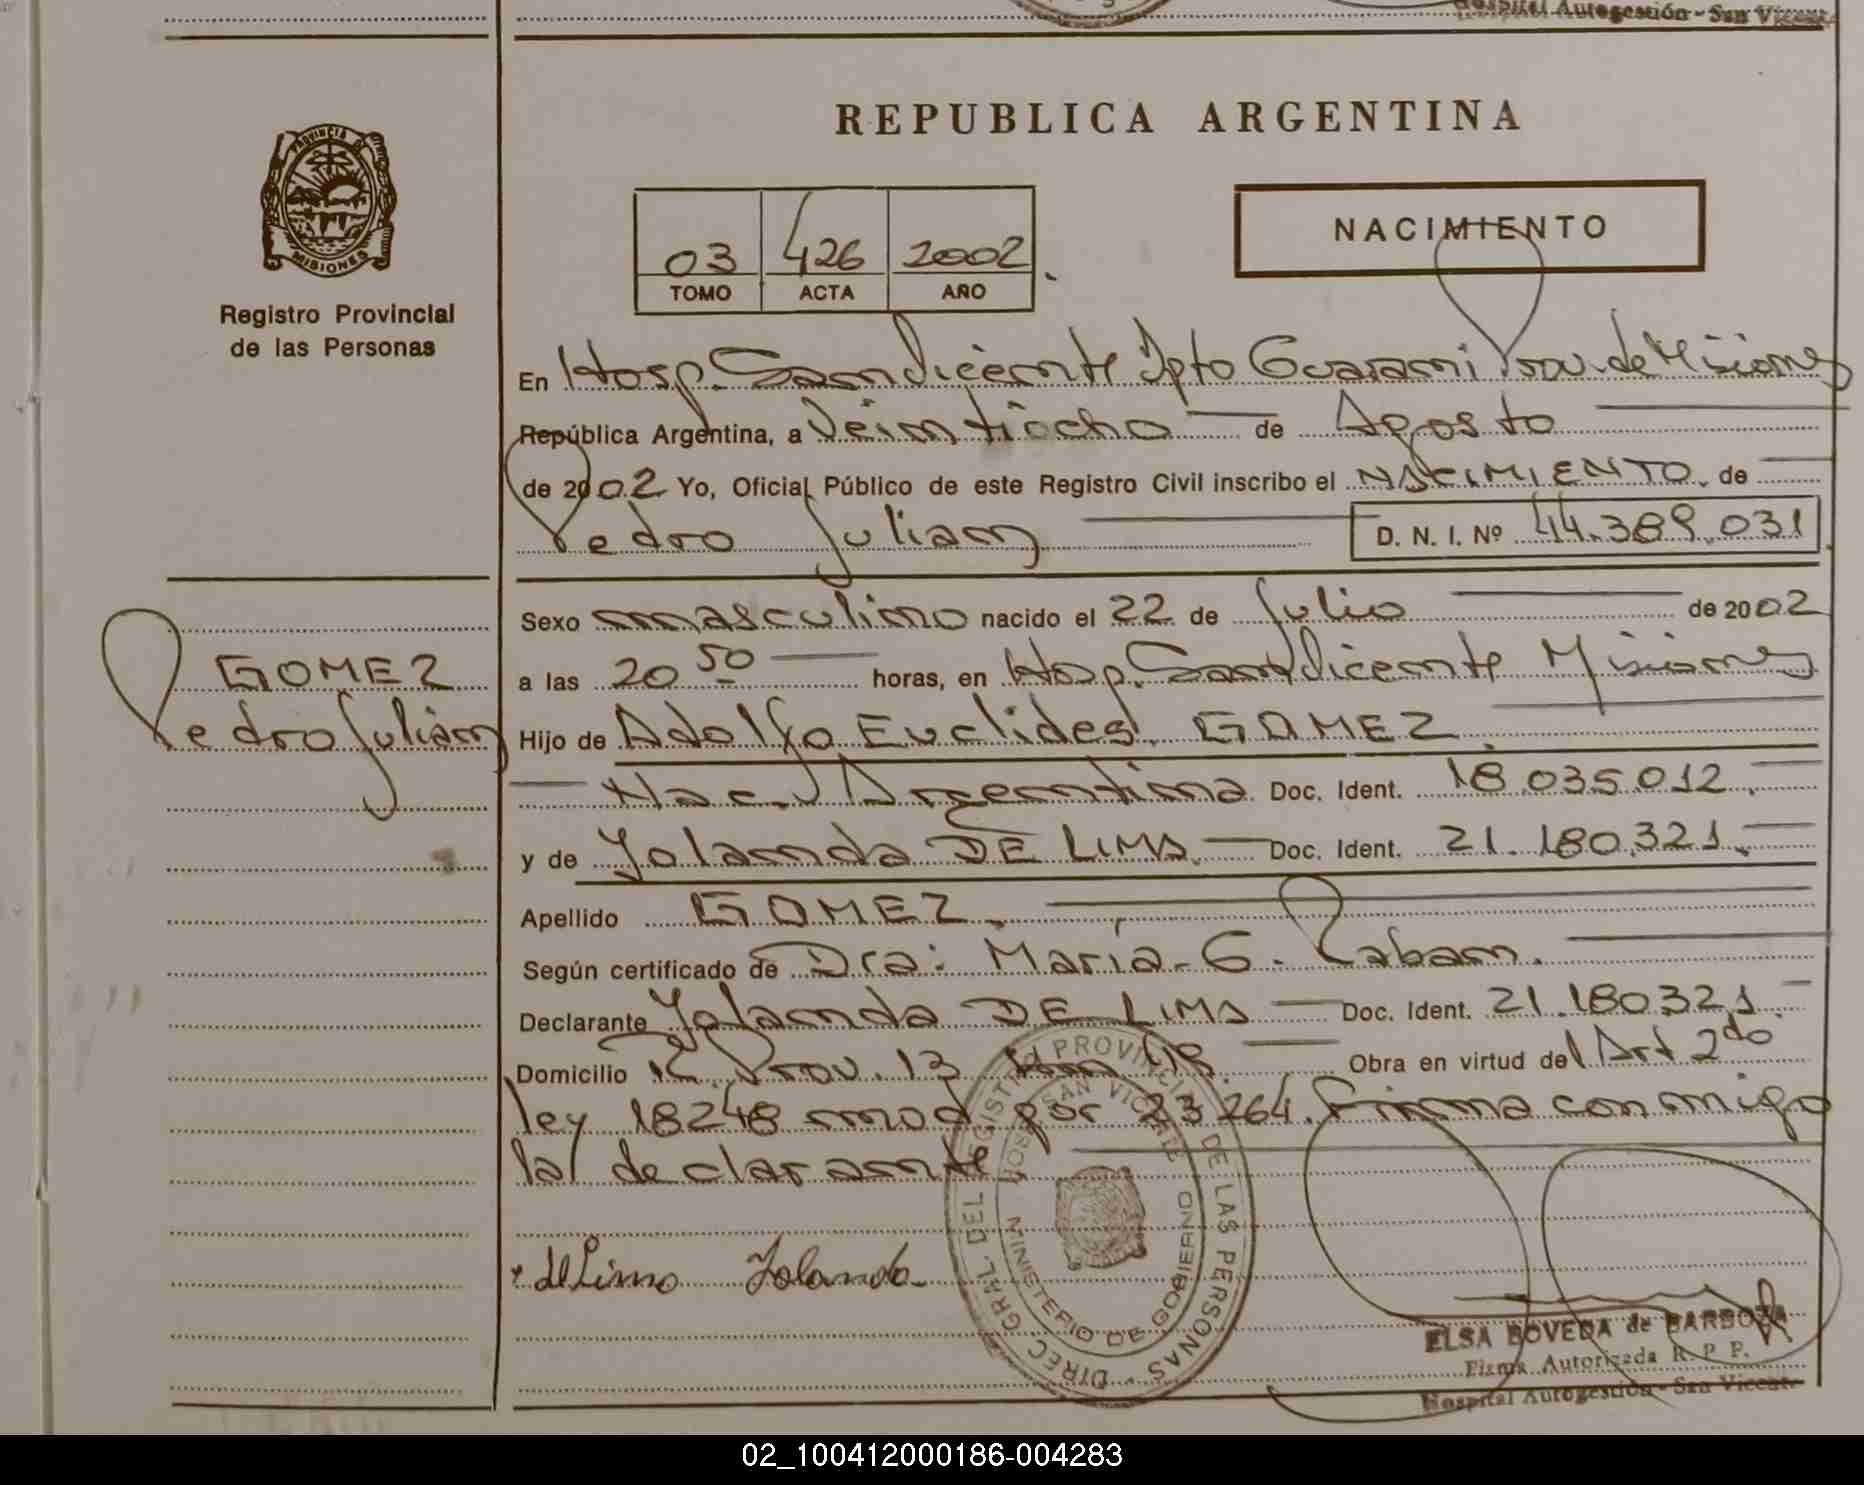 Hospital Autogestión - San Vicente
REPUBLICA ARGENTINA
PROVINCIA DE
MISIONES
Registro Provincial
de las Personas
03 426 2002
TOMO ACTA AÑO
NACIMIENTO
En Hosp. San Vicente Dpto Guarani Prov. de Misiones
República Argentina, a Veintiocho de Agosto
de 2002 Yo, Oficial Público de este Registro Civil inscribo el NACIMIENTO de
Pedro Julian D. N. I. Nº 44.389.031
GOMEZ
Pedro Julian
Sexo masculino nacido el 22 de Julio de 2002
a las 20 50 horas, en Hosp. San Vicente Misiones
Hijo de Adolfo Euclides GOMEZ
Nac. Argentina Doc. Ident. 18.035.012
y de Yolanda DE LIMA Doc. Ident. 21.180.321
Apellido GOMEZ
Según certificado de Dra: Maria G. Raban.
Declarante Yolanda DE LIMA Doc. Ident. 21.180321
Domicilio R. Prov. 13 Km Obra en virtud del Art 2do
ley 18248 mod por 23264. Firma conmigo
la declarante
de Lima Yolanda
DIREC. GRAL. DEL REGISTRO PROVINCIAL DE LAS PERSONAS
HOSP. SAN VICENTE
MINISTERIO DE GOBIERNO
ELSA BOVEDA de BARBOZA
Firma Autorizada R. P. P.
Hospital Autogestión - San Vicente
02_100412000186-004283